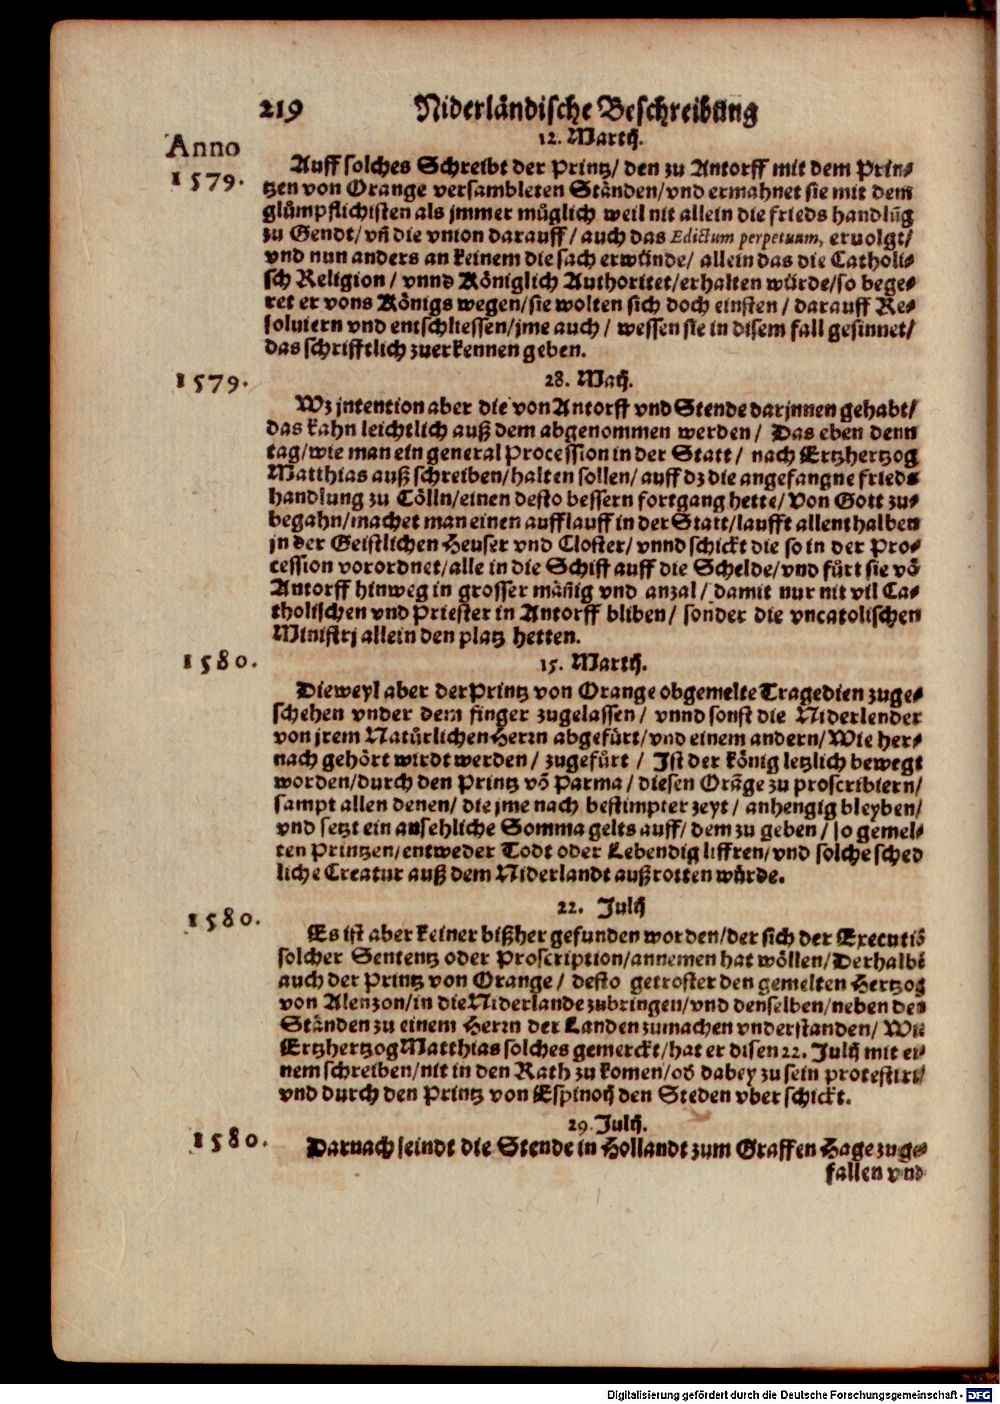 219 Niderländische Beschreibung
12. Martij.
Anno
1579.
Auff solches Schreibt der Printz/ den zu Antorff mit dem Prin-
tzen von Orange versambleten Ständen/ vnd ermahnet sie mit dem
glümpflichisten als jmmer müglich weil nit allein die frieds handlũg
zu Gendt/ vñ die vnion darauff/ auch das Edictum perpetuum, eruolgt/
vnd nun anders an keinem die sach erwünde/ allein das die Catholi-
sch Religion/ vnnd Königlich Authoritet/ erhalten würde/ so bege-
ret er vons Königs wegen/ sie wolten sich doch einsten/ darauff Re-
soluiern vnd entschliessen/ jme auch/ wessen sie in disem fall gesinnet/
das schrifftlich zuerkennen geben.
28. Maij.
1579.
Wz jntention aber die von Antorff vnd Stende darjnnen gehabt/
das kahn leichtlich auß dem abgenommen werden/ Das eben denn
tag/ wie man ein general Procession in der Statt/ nach Ertzhertzog
Matthias auß schreiben/ halten sollen/ auff dz die angefangne frieds
handlung zu Cölln/ einen desto bessern fortgang hette/ Von Gott zu-
begahn/ machet man einen aufflauff in der Statt/ laufft allenthalben
jn der Geistlichen Heuser vnd Closter/ vnnd schickt die so in der Pro-
cession vorordnet/ alle in die Schiff auff die Schelde/ vnd fürt sie võ
Antorff hinweg in grosser mäñig vnd anzal/ damit nur nit vil Ca-
tholischen vnd Priester in Antorff bliben/ sonder die vncatolischen
Ministrj allein den platz hetten.
15. Martij.
1580.
Dieweyl aber der Printz von Orange obgemelte Tragedien zuge-
schehen vnder dem finger zugelassen/ vnnd sonst die Niderlender
von jrem Natürlichen Herrn abgefürt/ vnd einem andern/ Wie her-
nach gehört wirdt werden/ zugefürt/ Ist der könig letzlich bewegt
worden/ durch den Printz võ Parma/ diesen Orãge zu proscribiern/
sampt allen denen/ die jme nach bestimpter zeyt/ anhengig bleyben/
vnd setzt ein ansehliche Somma gelts auff/ dem zu geben/ so gemel-
ten Printzen/ entweder Todt oder Lebendig liffren/ vnd solche sched
liche Creatur auß dem Niderlandt außrotten würde.
22. Julij
1580.
Es ist aber keiner bißher gefunden worden/ der sich der Executiõ
solcher Sententz oder Proscription/ annemen hat wöllen/ Derhalbẽ
auch der Printz von Orange/ desto getroster den gemelten Hertzog
von Alenzon/ in die Niderlande zubringen/ vnd denselben/ neben den
Ständen zu einem Herrn der Landen zumachen vnderstanden/ Wie
Ertzhertzog Matthias solches gemerckt/ hat er disen 22. Julij mit ei-
nem schreiben/ nit in den Rath zu komen/ od dabey zu sein protestirt/
vnd durch den Printz von Espinoij den Steden vberschickt.
29. Julij.
1580.
Darnach seindt die Stende in Hollandt zum Graffen Hage zuge-
fallen vnd
Digitalisierung gefördert durch die Deutsche Forschungsgemeinschaft - DFG